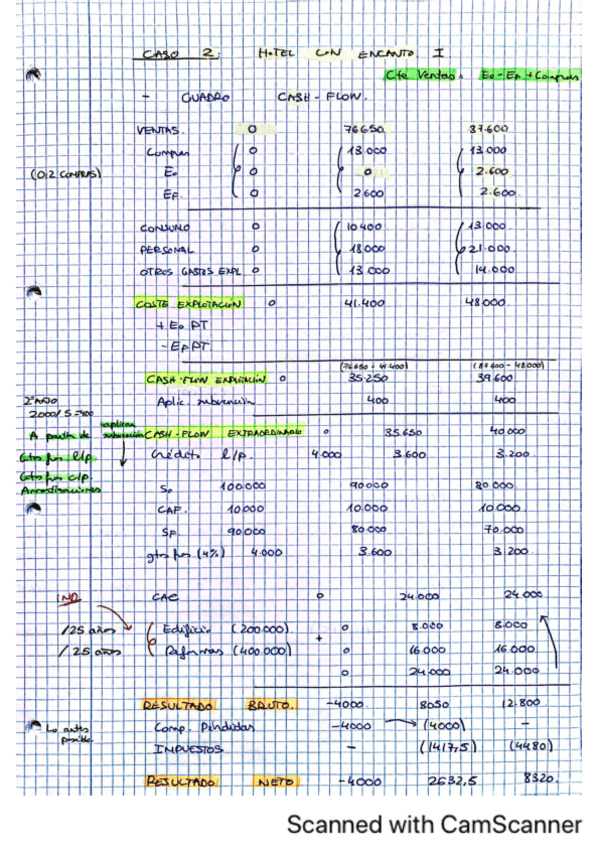 CASO 2 HOTEL CON ENCANTO I
Cte Ventas: Eo - EF + Compras
- CUADRO CASH-FLOW.
VENTAS. 0 76650 87.600
Compras 0 13.000 13.000
(0,2 COMPRAS) Eo 0 0 2.600
EF. 0 2600 2.600
CONSUMO 0 10400 13.000
PERSONAL 0 18000 21.000
OTROS GASTOS EXPL 0 13.000 14.000
COSTE EXPLOTACIÓN 0 41.400 48000
+ Eo PT
- EF PT
(76650 - 41400) (87600 - 48000)
CASH-FLOW EXPLOTACIÓN 0 35.250 39.600
2º AÑO Aplic. subvención 400 400
2000/5 = 400
A partir de aplicar subvención CASH-FLOW EXTRAORDINARIO 0 35.650 40.000
Gtos fros l/p. Crédito l/p. 4.000 3.600 3.200
Gtos fros c/p.
Amortizaciones So 100.000 90000 80.000
CAF. 10.000 10.000 10.000
SF. 90.000 80.000 70.000
gtos fros (4%) 4.000 3.600 3.200
CAE 0 24.000 24.000
/25 años Edificio (200.000) 0 8.000 8.000
/25 años Reformas (400.000) + 0 16.000 16.000
0 24.000 24.000
RESULTADO BRUTO. -4000 8050 12.800
Lo antes posible Comp. Pérdidas -4000 → (4000) -
IMPUESTOS - (1417,5) (4480)
RESULTADO NETO -4000 2632,5 8320.
Scanned with CamScanner